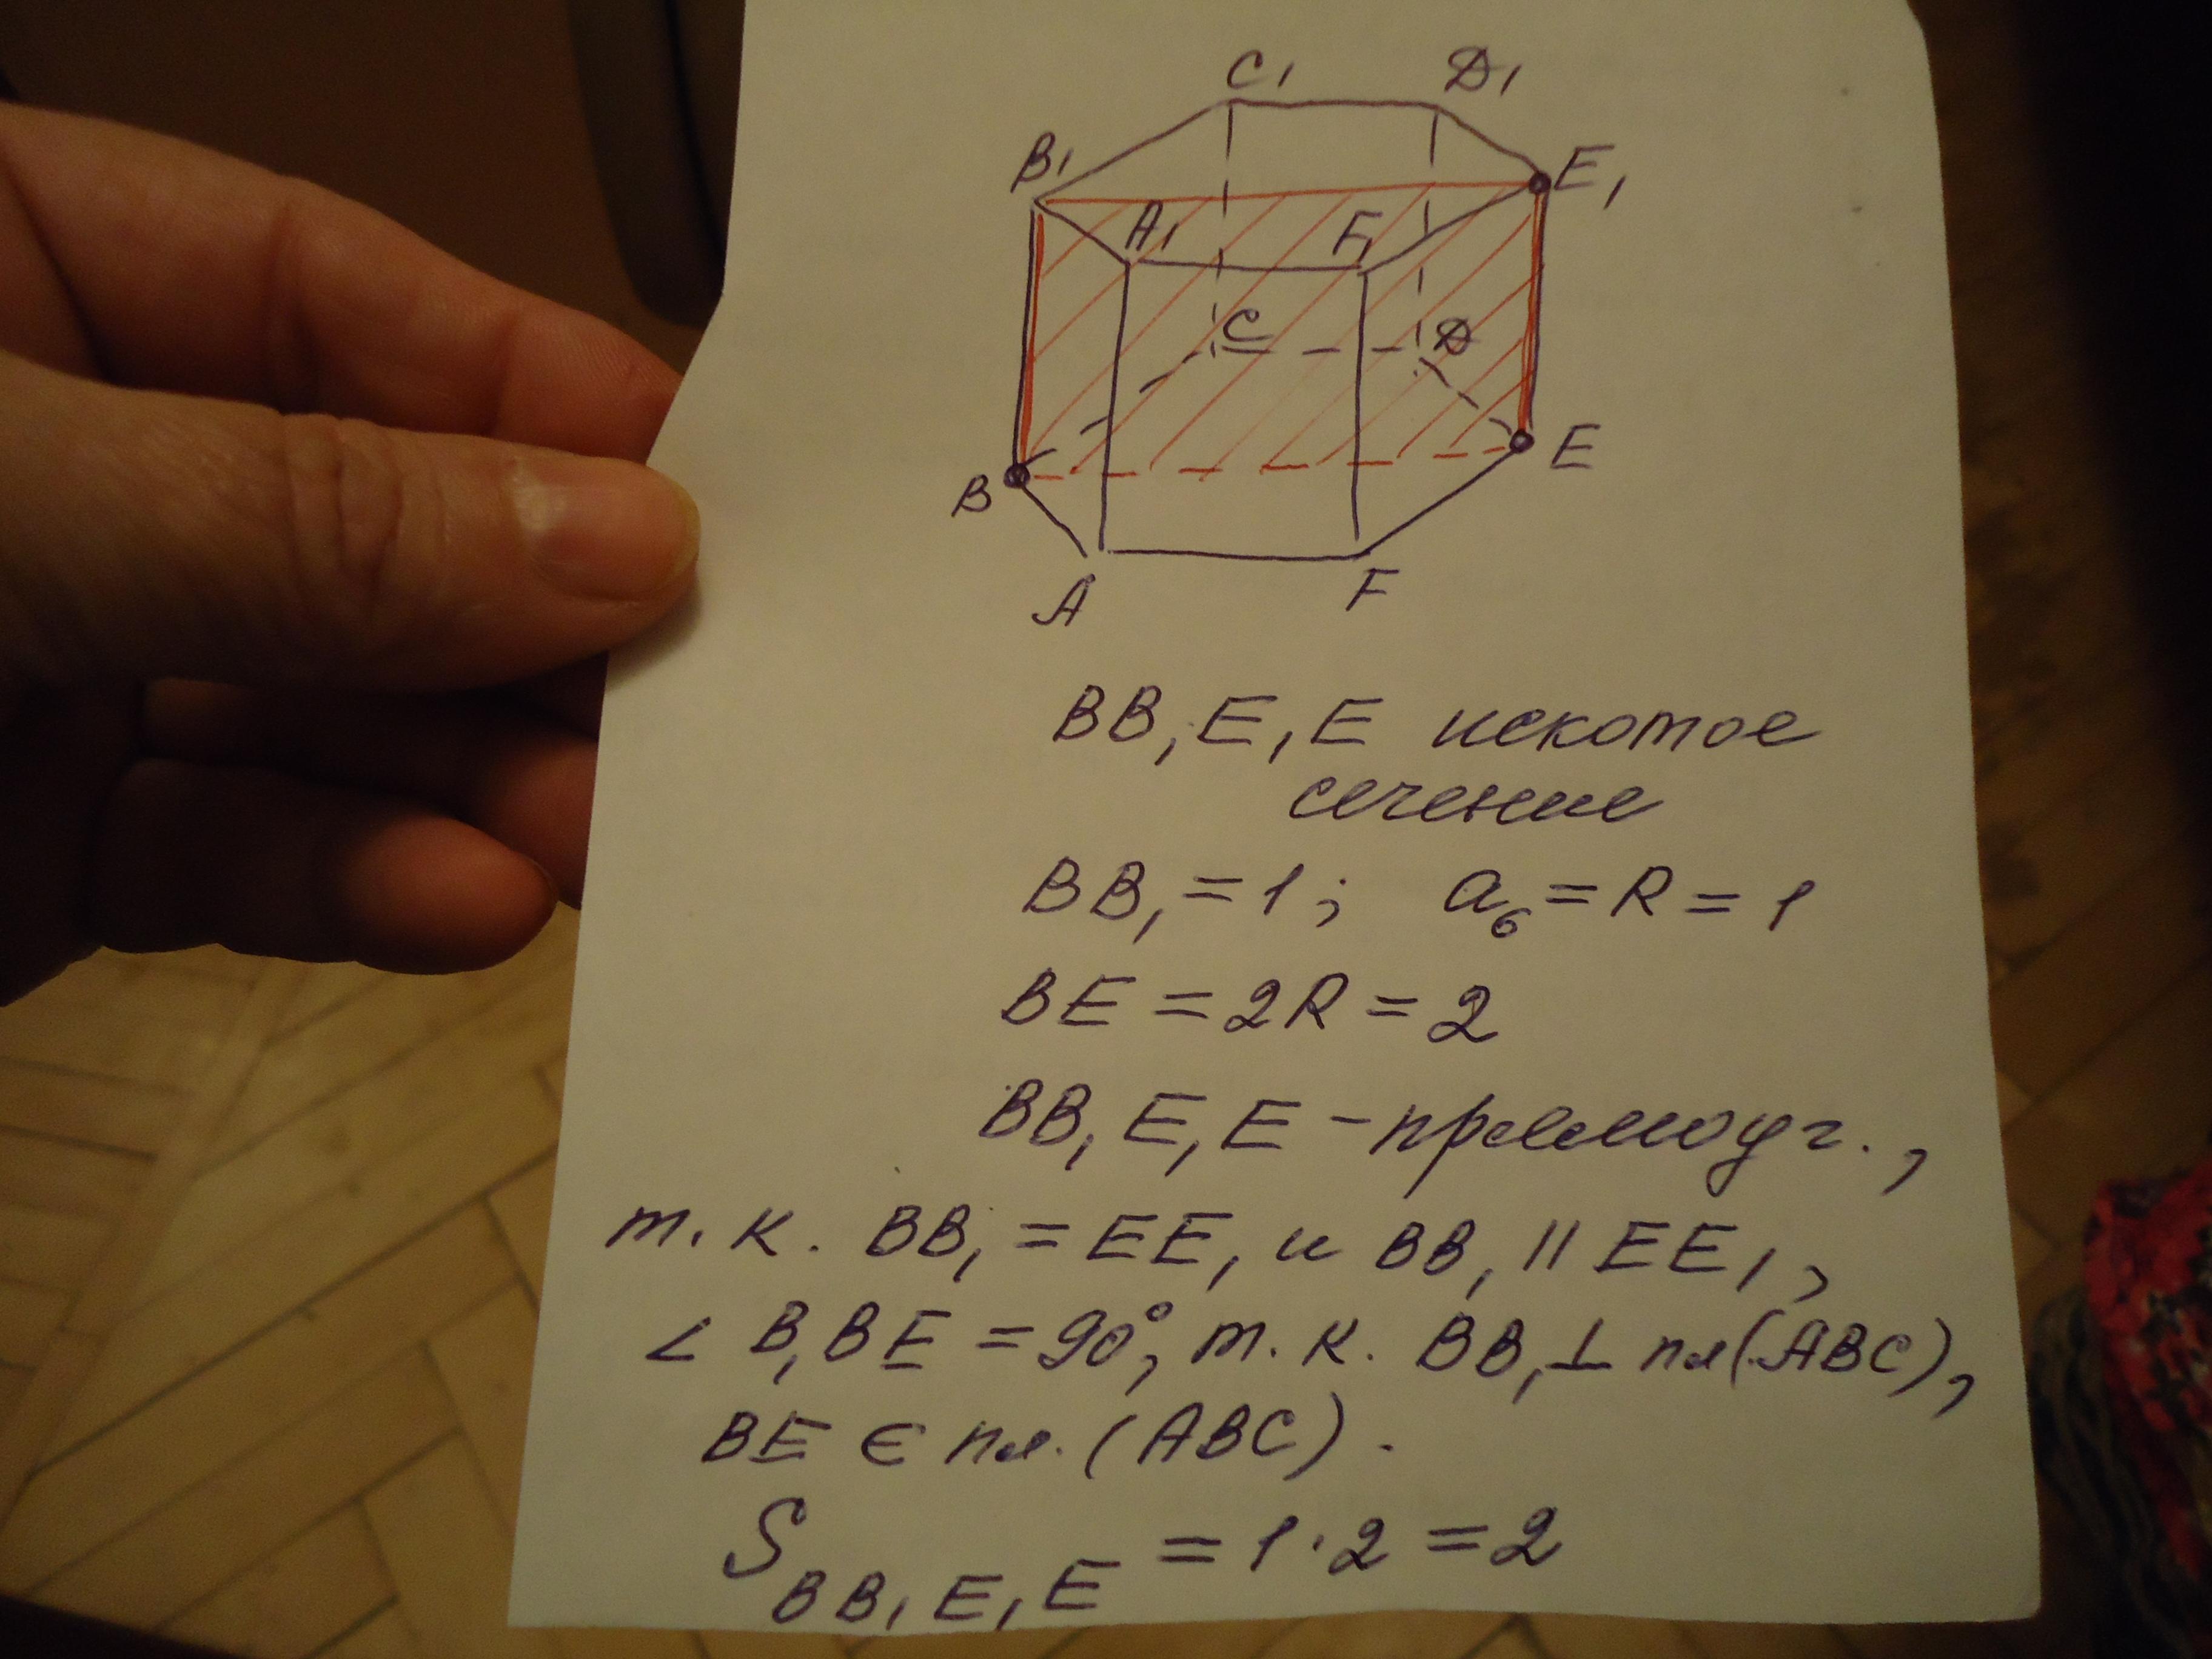 C₁ D₁
B₁ E₁
A₁ F₁
C D
B E
A F
BB₁E₁E искомое
сечение
BB₁ = 1; a₆ = R = 1
BE = 2R = 2
BB₁E₁E – прямоуг.,
т. к. BB₁ = EE₁ и BB₁ || EE₁,
∠ B₁BE = 90°, т. к. BB₁ ⊥ пл(ABC),
BE ∈ пл. (ABC).
S BB₁E₁E = 1·2 = 2